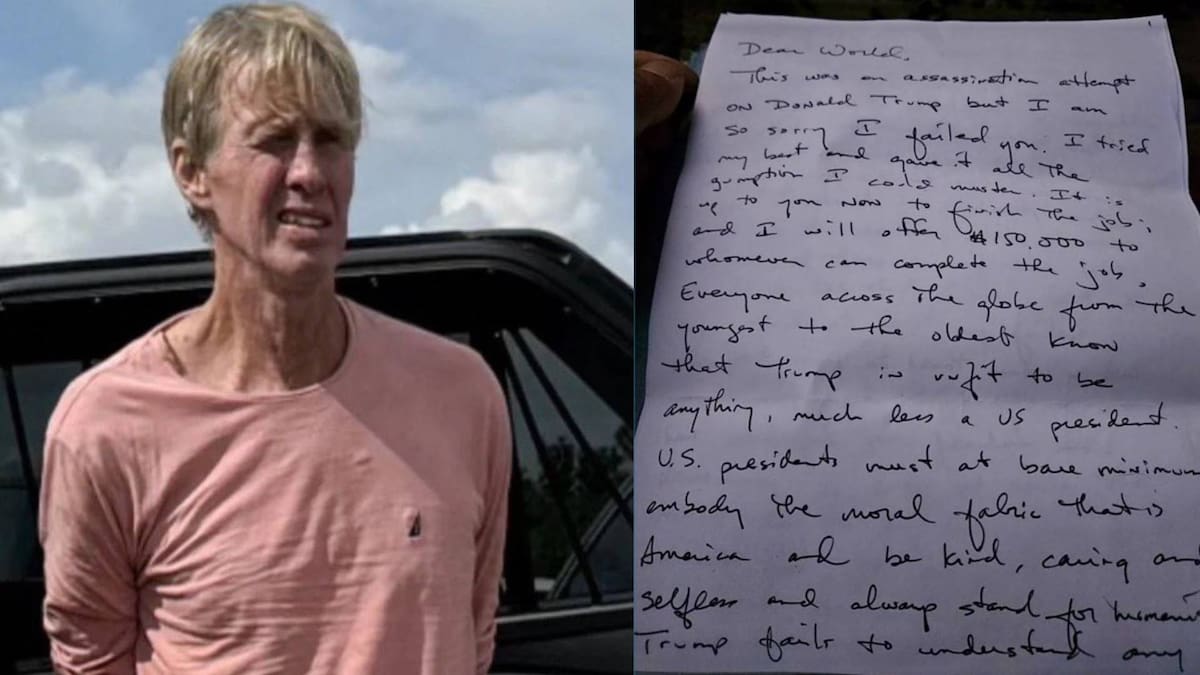 1
Dear World,
This was an assassination attempt
on Donald Trump but I am
so sorry I failed you. I tried
my best and gave it all the
gumption I could muster. It is
up to you now to finish the job;
and I will offer $150,000 to
whomever can complete the job.
Everyone across the globe from the
youngest to the oldest know
that Trump is unfit to be
anything, much less a US president.
U.S. presidents must at bare minimum
embody the moral fabric that is
America and be kind, caring and
selfless and always stand for humanit
Trump fails to understand any